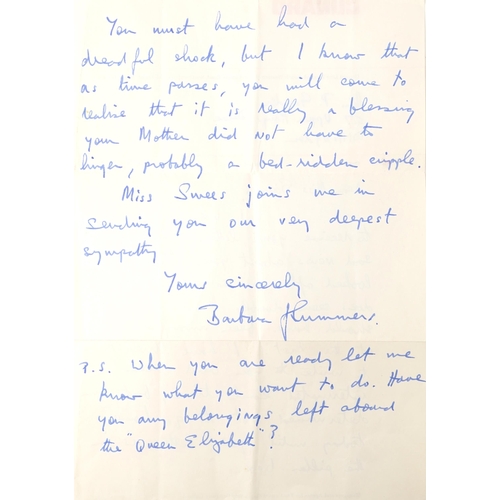 You must have had a
dreadful shock, but I know that
as time passes, you will come to
realise that it is really a blessing
your Mother did not have to
linger, probably a bed-ridden cripple.
Miss Swees joins me in
sending you our very deepest
sympathy
Yours sincerely
Barbara
P.S. When you are ready let me
know what you want to do. Have
you any belongings left aboard
the "Queen Elizabeth"?